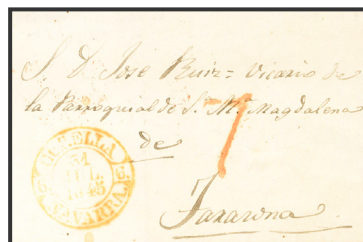 S. D. Jose Ruiz = Vicario de
la Parroquial de S.ta M.a Magdalena
de
Tarazona
TUDELLA
31
JUL
1845
NAVARRA